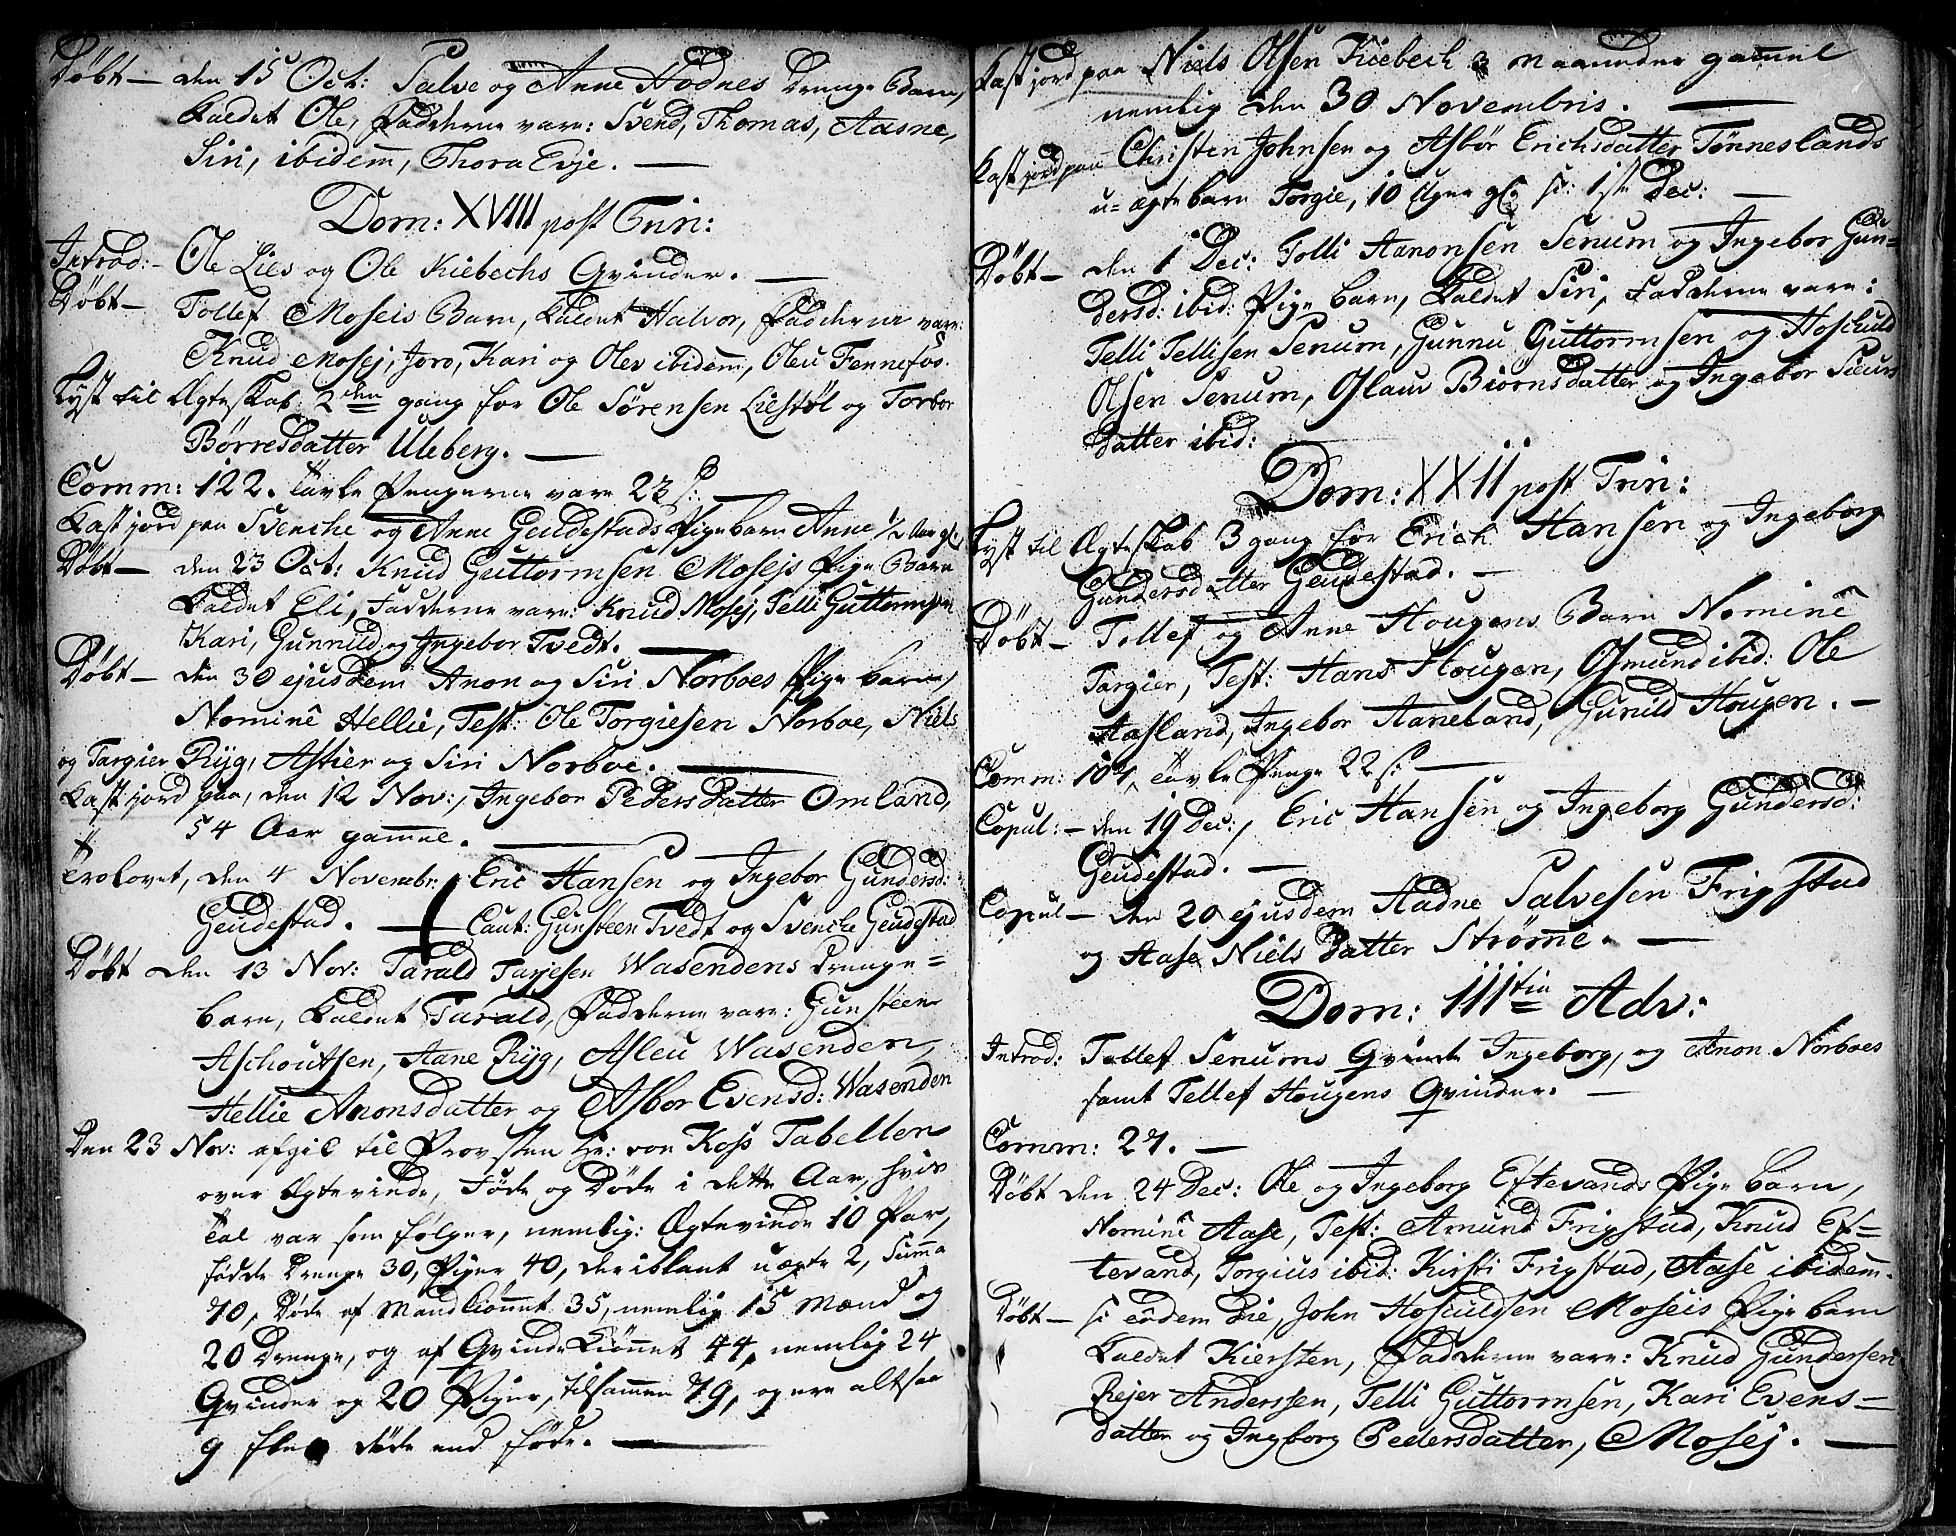 Döbt — den 15 Oct: Salve og Anne Hodnes Drenge Barn,
Kaldet Ole, Fadderne vare: Svend, Thomas, Aasne,
Siri, ibidem̄, Thora Evje. —
Dom: XVIII post Trin:
Introd: — Ole Lies og Ole Kiebechs Qvinder. —
Döbt — Tollef Moseis Barn, Kaldet Halvor, Fadderne vare:
Knud Mosej, Joro, Kari og Olev ibidem̄, Oleu Fennefos.
Lyst til Ægteskab 2den gang for Ole Sørensen Liestøl og Torbor
Børresdatter Uleberg. —
Comm: 122. Tavle Pengerne vare 22 ß: —
Kast jord paa Svenche og Anne Geudestads Pigebarn Anne 1/2 Aar gl:
Döbt — den 23 Oct: Knud Guttormsen Mosejs Pige Barn
Kaldet Eli, Fadderne vare: Knud Mosej, Telli Guttormsen
Kari, Gunnild og Ingebor Tvedt. —
Döbt — den 30 ejusdem Anon og Siri Norboes Pige barn,
Nominê Hellie, Test: Ole Torgiesen Norboe, Niels
og Targier Ryg, Astier og Siri Norboe. —
Kast jord paa, den 12 Nov:, Ingebor Pedersdatter Omland,
54 Aar gam̄el. —
Trolovet, den 4 Novembr: Eric Hansen og Ingebor Gundersd:
Geudestad. — Caut: Gunsteen Tvedt og Svenche Geudestad
Döbt den 13 Nov: Tarald Tarjesen Wasendens Drenge=
barn, Kaldet Tarald, Fadderne vare: Gunsteen
Aschoutsen, Aane Ryg, Asleu Wasenden,
Hellie Anonsdatter og Asbor Evensd: Wasenden
Den 23 Nov: afgik til Provsten Hr: von Koss Tabellen
over Ægteviede, Føde og Døde i dette Aar, hvis
Tal var som følger, nemlig: Ægteviede 10 Par,
fødde Drenge 30, Piger 40, deriblant uægte 2, Sum̄a
70, Døde af Mandkiønnet 35, nemlig 15 Mænd og
20 Drenge, og af Qvindekiønnet 44, nemlig 24
Qvinder og 20 Piger, tilsammen 79, og ere altsaa
9 fle døde end føde. —
Kast jord paa Niels Olsen Kiebech 3 Maaneder gam̄el
nemlig den 30 Novembris. —
Kast jord paa Christen Johnsen og Asbør Erichsdatter Tønneslands
u=ægte barn Torgie, 10 Uger gl: d: 1ste Dec: —
Döbt — den 1 Dec: Tolli Aanonsen Senum og Ingebor Gun=
dersd: ibid: Pige barn, Kaldet Siri, Fadderne vare:
Telli Tellisen Senum, Gunnu Guttormsen og Hoschuld
Olsen Senum, Oslaw Biørnsdatter og Ingebor Sieurs
datter ibid:
Dom: XXII post Trin:
Lyst til Ægteskab 3 gang for Erich Hansen og Ingeborg
Gundersdatter Geudestad. —
Döbt — Tollef og Anne Hougens Barn Nominê
Targier, Test: Hans Hougen, Osmund ibid: Ole
Aasland, Ingebor Aaneland, Gunild Hougen. —
Comm: 104, Tavle Penge 22 ß: —
Copul: — den 19 Dec:, Eric Hansen og Ingeborg Gundersd:
Geudestad. —
Copul — den 20 ejusdem Aadne Salvesen Frigstad
og Aase Nielsdatter Strøm̄e. —
Dom: IIItia Adv:
Introd: Tellef Senums Qvinde Ingeborg, og Anon Norboes
samt Tellef Hougens Qvinder. —
Comm: 27. —
Döbt den 24 Dec: Ole og Ingeborg Eftevands Pige barn,
Nominê Aase, Test: Amund Frigstad, Knud Ef=
tevand, Torgius ibid: Kirsti Frigstad, Aase ibidem̄.
Döbt — d: eôdem die, John Hosculdsen Moseis Pige barn
Kaldet Kiersten, Fadderne vare: Knud Gundersen
Rejer Anderssen, Telli Guttormsen, Kari Evens=
datter og Ingborg Pedersdatter, Mosej. —